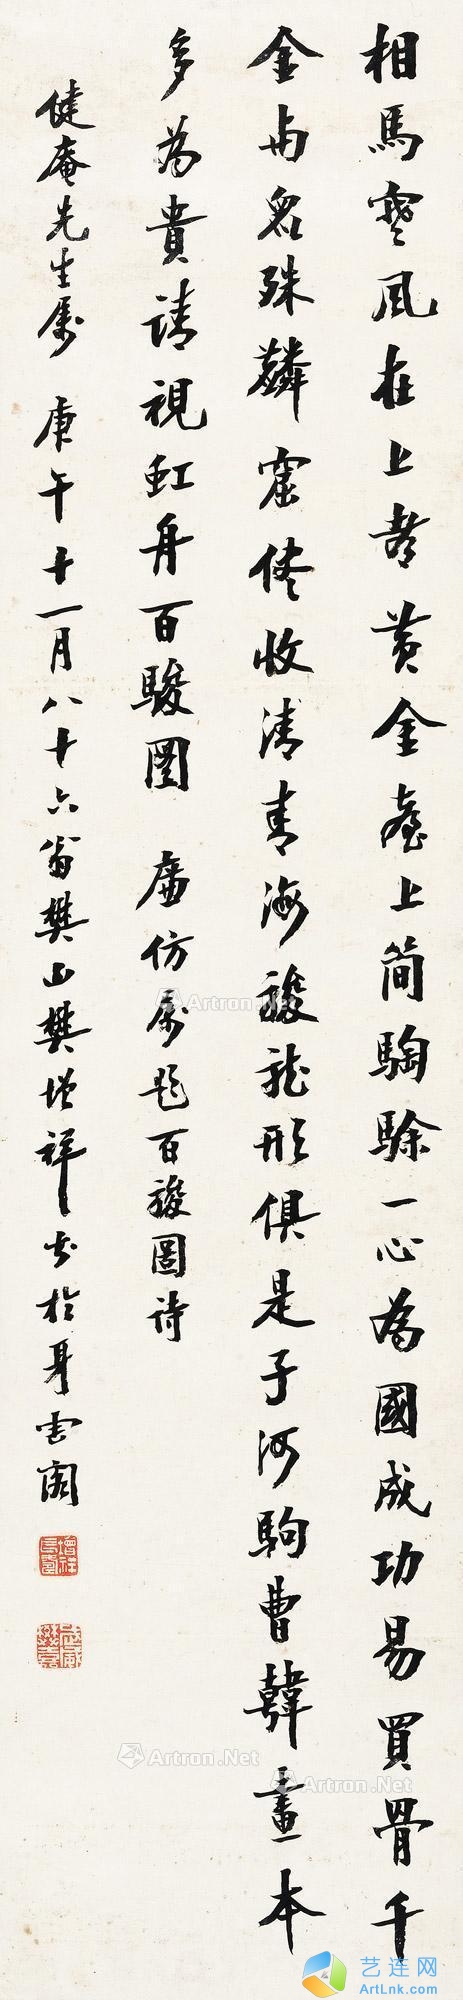 相馬寒風在上都黃金臺上簡騊駼一心為國成功易買骨千
金與眾殊麟窟收清青海駿龍形俱是子河駒曹韓畫本
多為貴請視虹舟百駿圖 廉仿屬題百駿圖詩
健庵先生屬 庚午十一月八十六翁樊山樊增祥書於身雲閣
Artron.Net
Artron.Net
Artron.Net
Artron.Net
艺连网
ArtLnk.Com